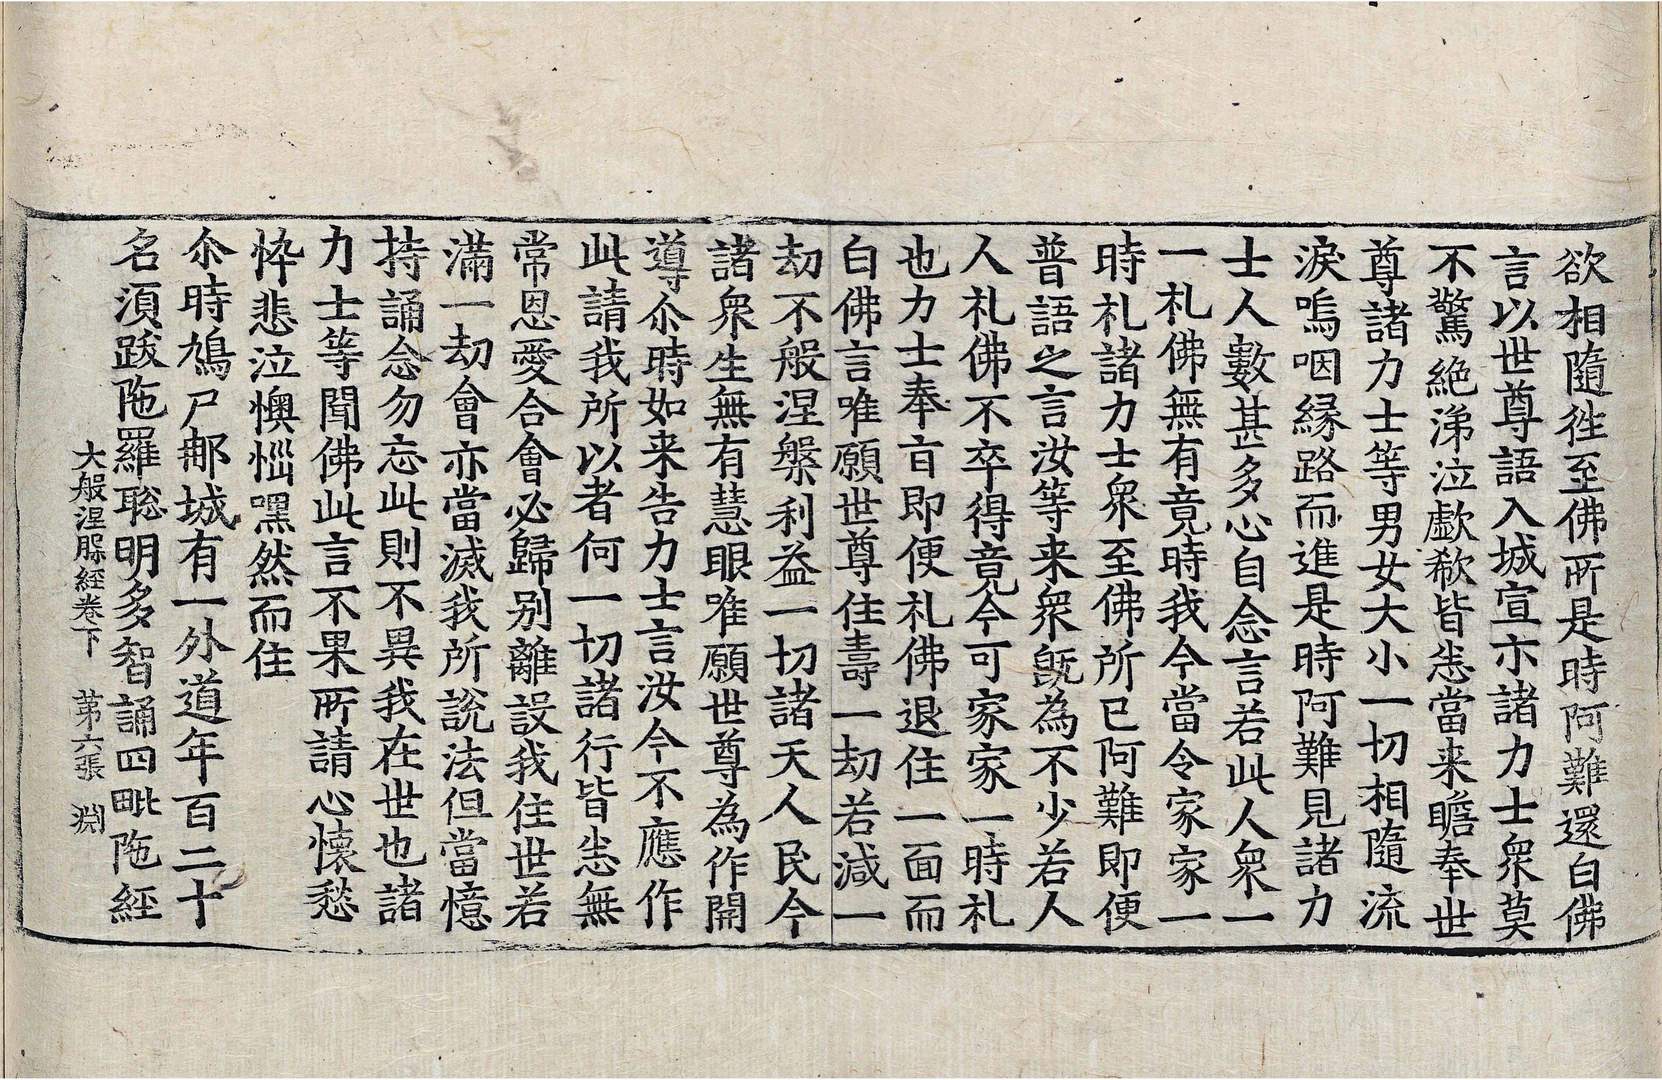 欲相隨徃至佛所是時阿難還白佛
言以世尊語入城宣示諸力士衆莫
不驚絶涕泣歔欷皆悉當来瞻奉世
尊諸力士等男女大小一切相隨流
淚嗚咽縁路而進是時阿難見諸力
士人數甚多心自念言若此人衆一
一札佛無有竟時我今當令家家一
時札諸力士衆至佛所已阿難即便
普語之言汝等来衆旣為不少若人
人札佛不卒得竟今可家家一時札
也力士奉㫖即便札佛退住一面而
白佛言唯願世尊住壽一劫若减一
劫不般涅槃利益一切諸天人民今
諸衆生無有慧眼唯願世尊為作開
導尒時如来告力士言汝今不應作
此請我所以者何一切諸行皆悉無
常恩愛合會必歸别離設我住世若
滿一劫會亦當滅我所說法但當憶
持誦念勿忘此則不異我在世也諸
力士等聞佛此言不果所請心懷愁
悴悲泣懊惱嘿然而住
尒時鳩尸那城有一外道年百二十
名湏跋陁羅聡明多智誦四毗陁經
大般涅槃經卷下 第六張 淵